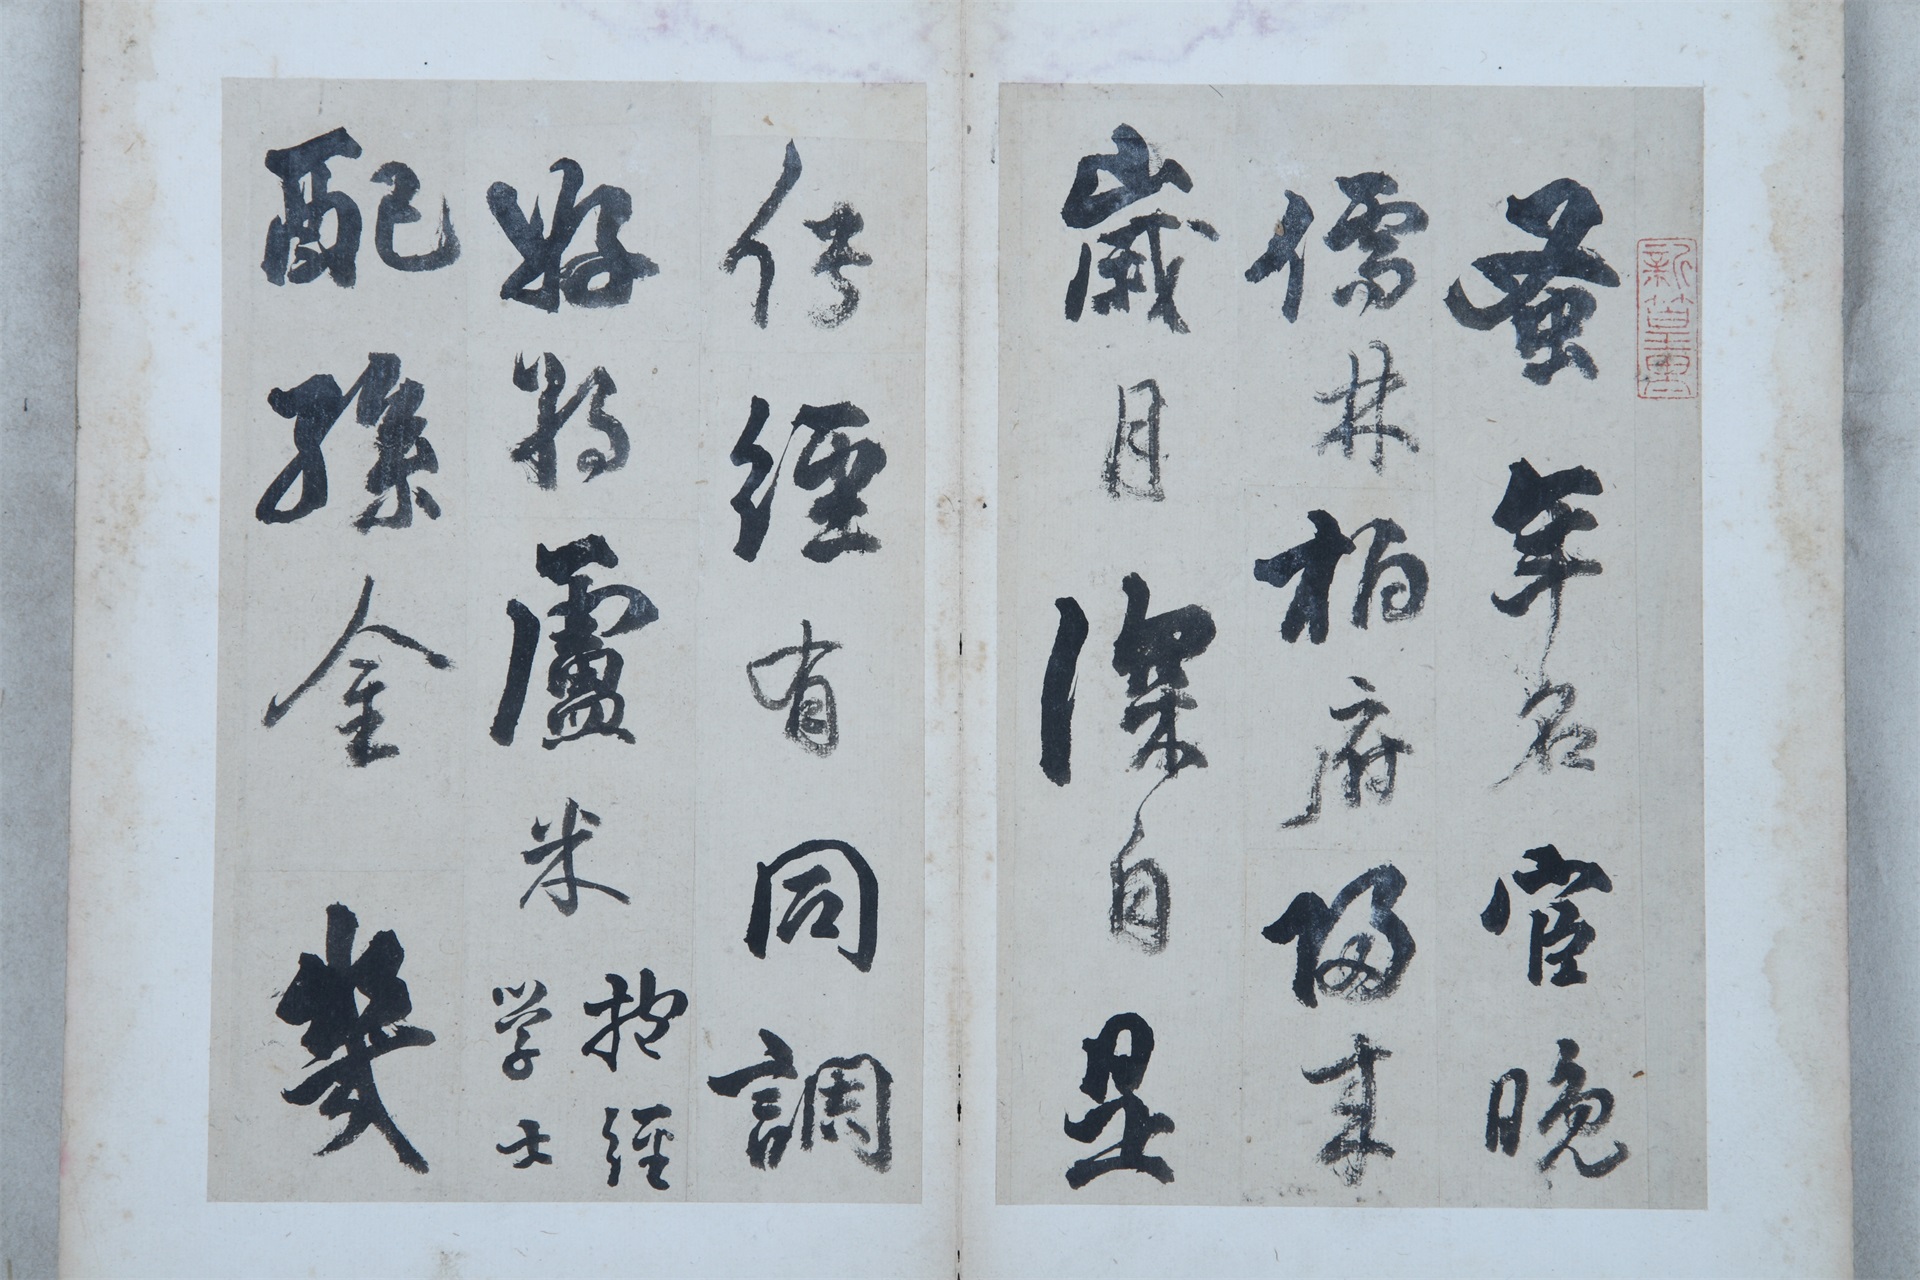 蚤年名宦晚
儒林栢府歸來
歲月深自是
傳經有同調
好將盧米抱經學士
配孫金幾